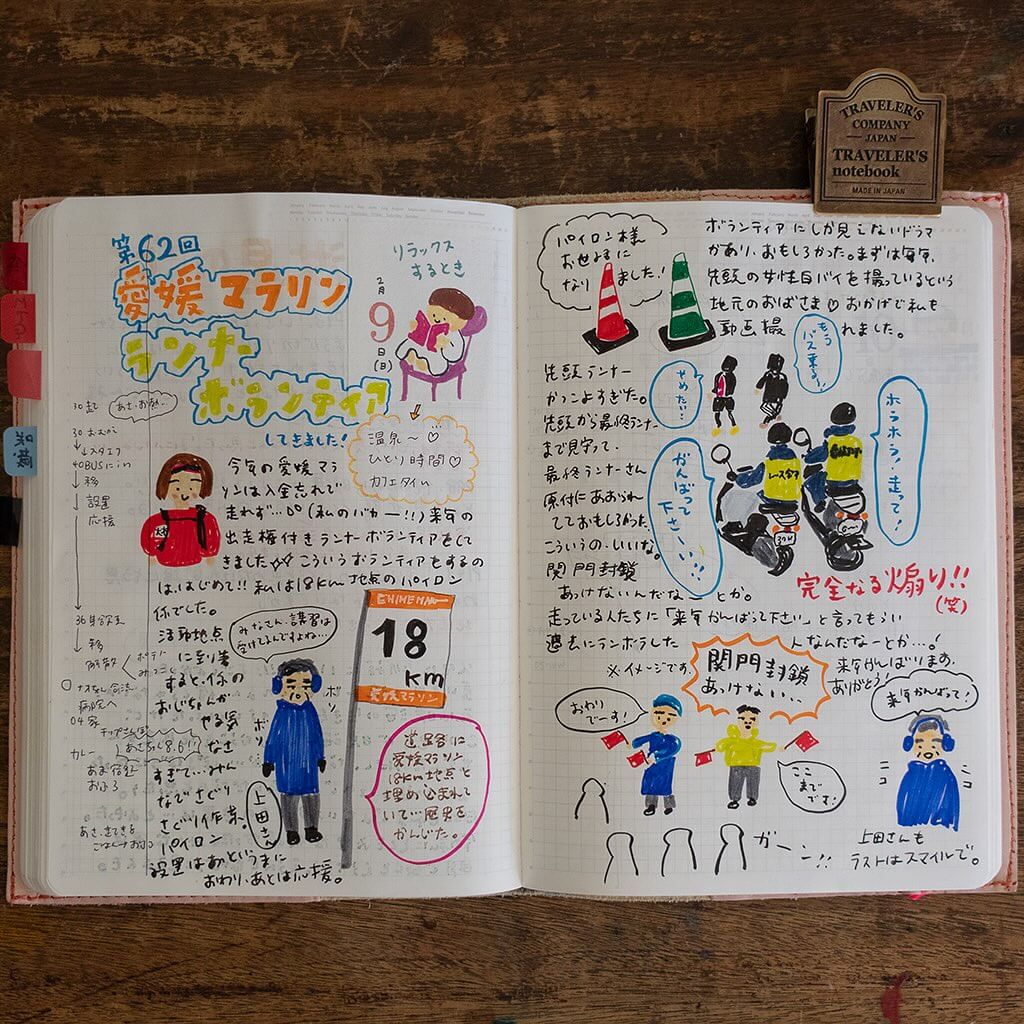 TRAVELER'S
COMPANY
JAPAN
TRAVELER'S
notebook
MADE IN JAPAN
第62回
愛媛マラソン
ランナー
ボランティア
してきました!
リラックス
するとき
2月
9
(日)
温泉〜♡
ひとり時間♡
カフェタイム
今年の愛媛マラ
ソンは入金忘れで
走れず…(私のバカー!!)来年の
出走権付きランナーボランティアをして
きました こういうボランティアをするの
は、はじめて!!私は18km地点のパイロン
係でした。
活動地点
に到着
すると、係の
おじちゃんが
やる気
なさ
すぎて…みん
なでさぐり
さぐり作業。
パイロン
設置はあというまに
おわり、あとは応援。
みなさん、講習は
受けてるんですよね…
ボソ
ボソ
上田さん
EHIME MAR
18
km
愛媛マラソン
道路に
愛媛マラソン
18km地点と
埋め込まれて
いて…歴史を
かんじた。
設置
応援
BUSにin
カレー
知識
パイロン様
お世話に
なりました!
ボランティアにしか見えないドラマ
があり、おもしろかった。まずは毎年、
先頭の女性白バイを撮っているという
地元のおばさま♡おかげで私も
動画撮れました。
先頭ランナー
かっこよすぎた。
先頭から最終ランナー
まで見守って、
最終ランナーさん
原付にあおられ
てておもしろかった。
こういうの、いいな。
関門封鎖
あっけないんだな…とか。
走っている人たちに「来年がんばって下さい」と言ってもらい
過去にランボラした人なんだなーとか…!
来年がんばります、
ありがとう!
やめたい…
もう
バス乗る…
がんばって
下さーい!!
ホラホラ!走って!
レース終了
完全なる煽り!!
(笑)
※イメージです
関門封鎖
あっけない…
おわり
でーす!
ここ
まで
です!
ガーン!!
来年がんばって!
ニコ
ニコ
上田さんも
ラストはスマイルで。